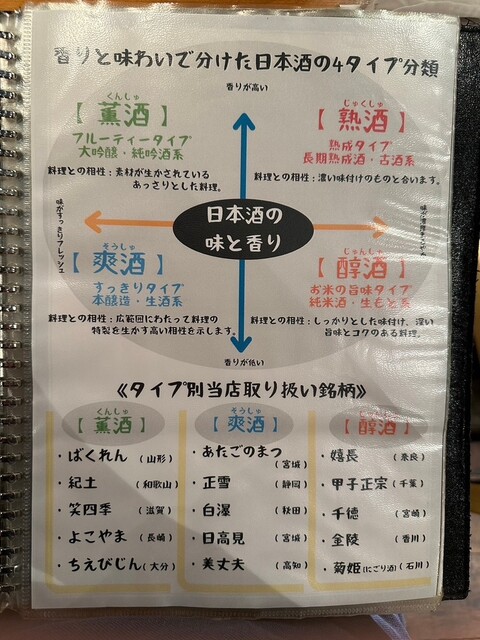 香りと味わいで分けた日本酒の4タイプ分類
香りが高い
くんしゅ
【薫酒】
フルーティータイプ
大吟醸・純吟酒系
料理との相性:素材が生かされている
あっさりとした料理。
じゅくしゅ
【熟酒】
熟成タイプ
長期熟成酒・古酒系
料理との相性:濃い味付けのものと合います。
味がすっきりフレッシュ
日本酒の
味と香り
そうしゅ
【爽酒】
すっきりタイプ
本醸造・生酒系
料理との相性:広範囲にわたって料理の
特製を生かす高い相性を示します。
じゅんしゅ
【醇酒】
お米の旨味タイプ
純米酒・生もと系
料理との相性:しっかりとした味付け、深い
旨味とコクのある料理。
香りが低い
《タイプ別当店取り扱い銘柄》
くんしゅ
【薫酒】
・ばくれん(山形)
・紀土(和歌山)
・笑四季(滋賀)
・よこやま(長崎)
・ちえびじん(大分)
そうしゅ
【爽酒】
・あたごのまつ
(宮城)
・正雪(静岡)
・白瀑(秋田)
・日高見(宮城)
・美丈夫(高知)
じゅんしゅ
【醇酒】
・嬉長(奈良)
・甲子正宗(千葉)
・千徳(宮崎)
・金陵(香川)
・菊姫(にごり酒)(石川)